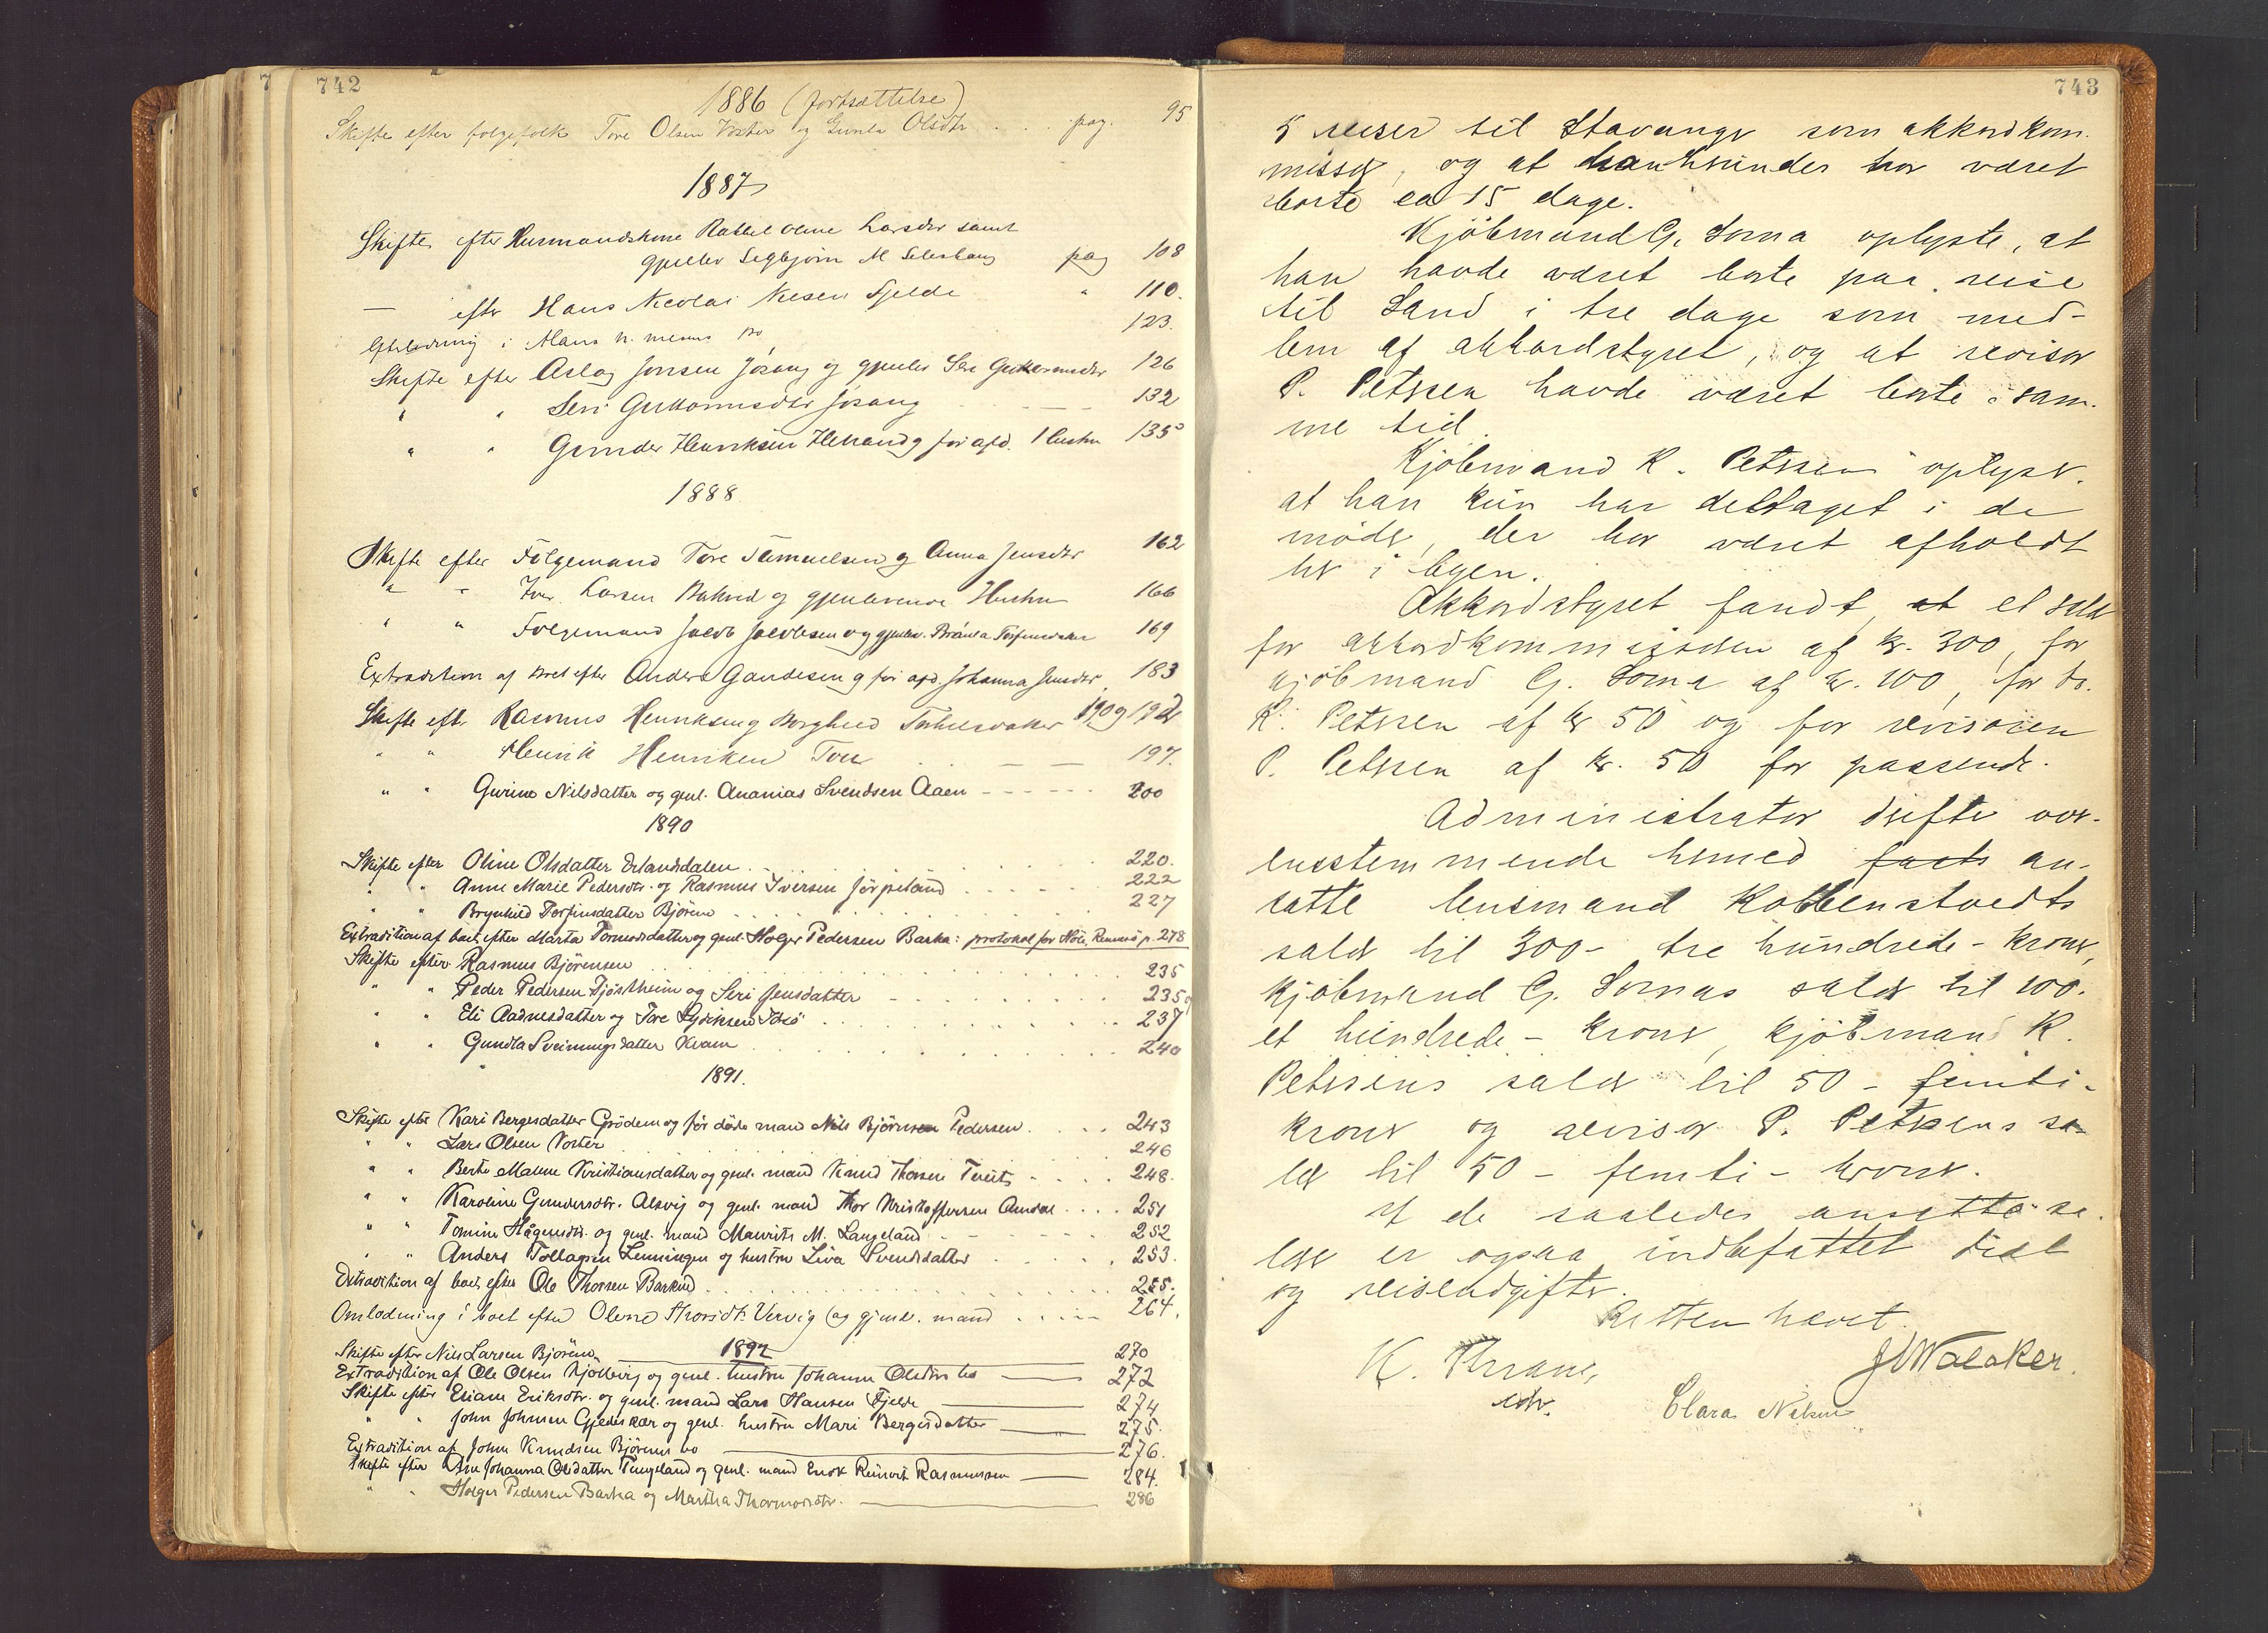 742
1886 (fortsættelse)
Skifte efter følgefolk Tore Olsen Voster og Gunla Olsdtr . . . pag. 95
1887
Skifte efter Husmandskone Olene Larsdtr samt
gjenlev Segbjørn M pag 108
— efter Hans Nicolai Nilsen Fjelde " 110.
i Hans N. bo 123.
Skifte efter Aslag Jonsen Jøsang og gjenlev Seri Guttormsdtr 126
" " Seri Guttormsdtr Jøsang — — — 132
" " Gunder Henriksen Helland og før afd. Hustru 135
1888
Skifte efter Følgemand Tore Samuelsen og Anna Jensdtr 162
" " Iver Larsen Bakved og gjenlevende Hustru 166
" " Følgemand Jacob Jacobsen og gjenlev. Torfinsdatter 169
Extradition af boet efter Anders Gaudesen og før afd. Johanna Jensdtr. 183
Skifte eft. Rasmus Henriksen og Borghild Torkelsdatter 190 og 192
" " Henrik Henriksen Tou . — — 197.
" " Gurine Nilsdatter og genl. Ananias Svendsen Aaen - - - - - - 200
1890
Skifte efter Oline Olsdatter Erlandsdalen . . . 220.
" " Anne Marie Pedersdtr. og Rasmus Iversen Jørpeland . . . . . 222
" " Brynhild Torfinsdatter Bjøreim . . . 227
Extradition af boet efter Marta Tormodsdatter og genl. Holger Pedersen Barka: protokol for Høle, Rennesø p. 278
Skifte efter Rasmus Bjørensen . . . 235
" " Peder Pedersen Tjøstheim og Seri Jensdatter . . . 235
" " Eli Aadnesdatter og Tore Lydiksen . . . 237
" " Gundla Sveinungsdatter Kvam . . . 240
1891.
Skifte efter Kari Bergesdatter Grødem og før døde mand Nils Bjørnsen Pedersen . . . . 243
" " Lars Olsen Voster . . . 246
" " Berte Malene Kristiansdatter og genl. mand Knud Thorsen . . . . 248.
" " Karoline Gundersdtr. Alsvig og genl. mand Thor Kristoffersen Amdal . . . . 251
" " Tomine Hågensdtr. og genl. mand Maurits M. Langeland . . . 252
" " Anders Tollagsen Lenningen og hustru Siva Svendsdatter . . . 253.
Extradition af boet efter Ole Thorsen Barkved . . . 255.
Omlodning i boet efter Olene Thorsdtr. Vervig (og gjenl. mand . . . . . 264.
1892
Skifte efter Nils Larsen Bjøreim 270
Extradition af Ole Olsen Kjølleberg og genl. hustru Johanne Olsdtrs bo — 272
Skifte efter Eliam Eriksdtr. og genl. mand Lars Hansen Fjelde — 274
" " John Johnsen Gjedeskær og genl. hustru Mari Bergesdatter — 275.
Extradition af John Knudsen Bjøreims bo — 276.
Skifte efter Ane Johanna Olsdatter Tungeland og genl. mand Enok Reinert Rasmussen — 284.
" " Holger Pedersen Barka og Martha Thormodsdtr. — 286
743
5 reiser til Stavanger som akkordkom-
missær, og at han herunder har været
borte ca 15 dage.
Kjøbmand G. Soma oplyste, at
han havde været borte paa reise
til Sand i tre dage som med-
lem af akkordstyret, og at revisor
P. Petersen havde været borte i sam-
me tid.
Kjøbmand K. Petersen oplyser
at han kun har deltaget i de
møder, der har været afholdt
her i byen.
Akkordstyret fandt, at et salær
for akkordkommissæren af kr. 300, for
kjøbmand G. Soma af kr. 100, for do.
K. Petersen af kr 50 og for revisoren
P. Petersen af kr. 50 for passende.
Administrator skifte over-
ensstemmende hermed an-
satte lensmand Kobbenstvedts
salær til 300 - tre hundrede - kroner,
kjøbmand G. Somas salær til 100 -
et hundrede - kroner, kjøbmand K.
Petersens salær til 50 - femti -
kroner og revisor P. Petersens sa-
lær til 50 - femti - kroner.
I de saaledes ansatte sa-
lær er ogsaa indbefattet diæt
og reiseudgifter.
Retten hævet.
K. Thrane,
edr.
J Walaker.
Clara Nelsen